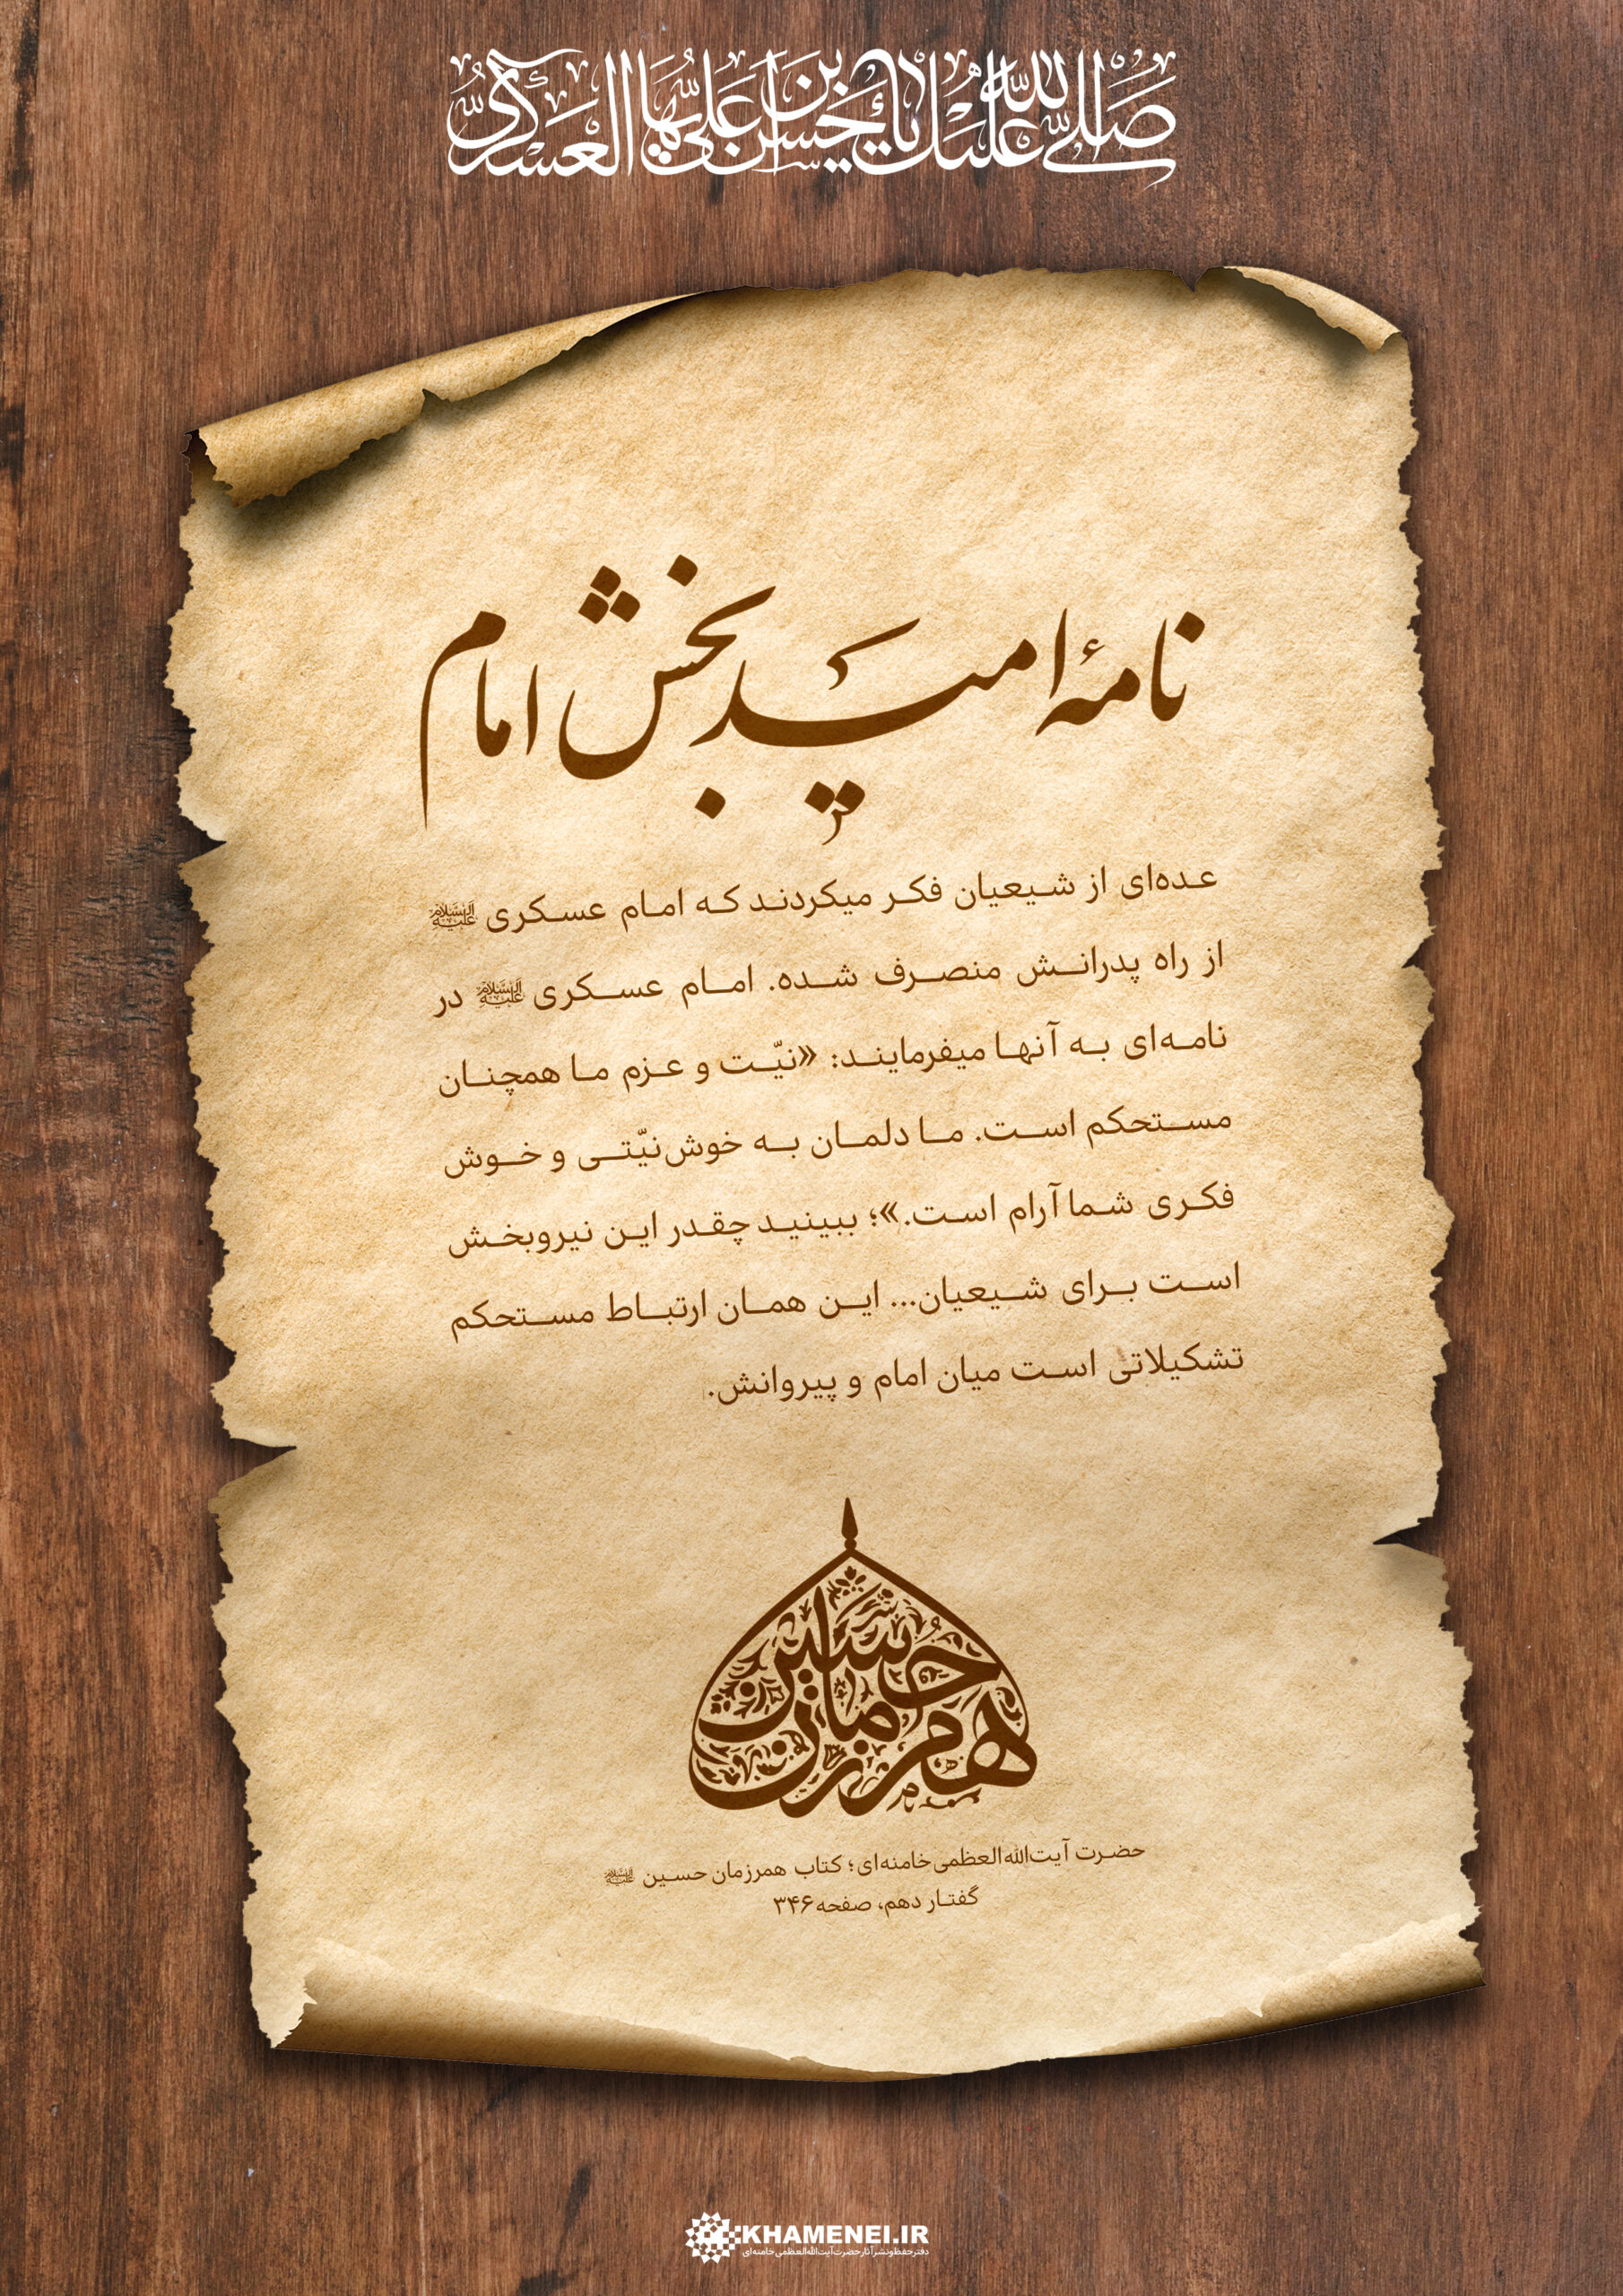 صَلَّی اللهُ عَلَیْكَ یا حَسَنَ بْنَ عَلِیٍّ اَیُّهَا الْعَسْکَرِیُّ
نامهٔ امیدبخش امام
عده‌ای از شیعیان فکر میکردند که امام عسکری علیه‌السلام
از راه پدرانش منصرف شده. امام عسکری علیه‌السلام در
نامه‌ای به آنها میفرمایند: «نیّت و عزم ما همچنان
مستحکم است. ما دلمان به خوش‌نیّتی و خوش
فکری شما آرام است.»؛ ببینید چقدر این نیروبخش
است برای شیعیان... این همان ارتباط مستحکم
تشکیلاتی است میان امام و پیروانش.
هم‌رزمان حسین
حضرت آیت‌الله‌العظمی‌خامنه‌ای؛ کتاب همرزمان حسین علیه‌السلام
گفتار دهم، صفحه۳۴۶
KHAMENEI.IR
دفتر حفظ و نشر آثار حضرت آیت‌الله‌العظمی خامنه‌ای